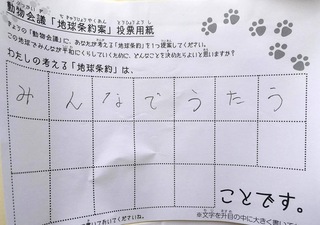 動物会議「地球条約案」投票用紙
きょうの「動物会議」に、あなたが考える「地球条約」を1つ提案してください。
この地球でみんなが平和にくらしていくために、どんなことを決めたらよいと思いますか?
わたしの考える「地球条約」は、
みんなでうたう
ことです。
※文字を升目の中に大きく書いて
ておいてくださいね。